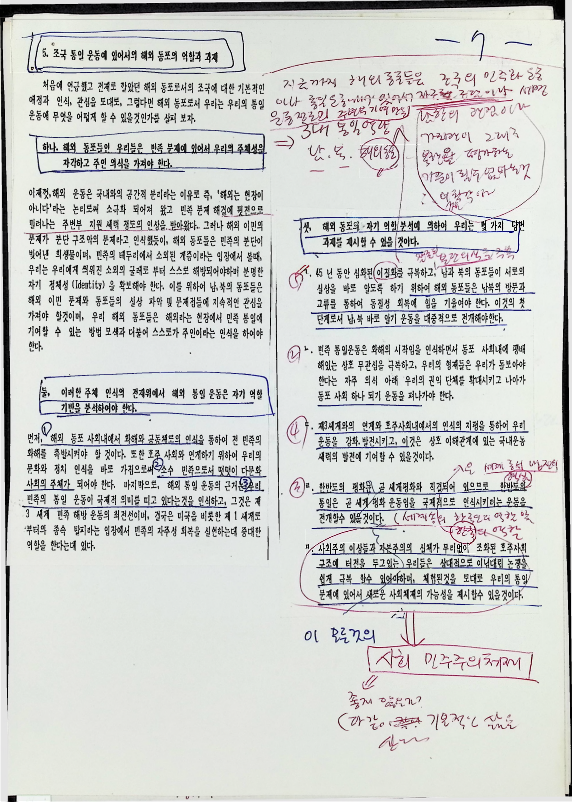 - 7 -
5. 조국 통일 운동에 있어서의 해외 동포의 역할과 과제
처음에 언급했고 전제로 깔았던 해외 동포로서의 조국에 대한 기본적인
애정과 인식, 관심을 토대로, 그렇다면 해외 동포로서 우리는 우리의 통일
운동에 무엇을 어떻게 할 수 있을것인가를 살펴 보자.
하나, 해외 동포들인 우리들은 민족 문제에 있어서 우리의 주체성을
자각하고 주인 의식을 가져야 한다.
이제껏, 해외 운동은 국내와의 공간적 분리라는 이유로 즉, '해외는 현장이
아니다'라는 논리로써 소극화 되어져 왔고 민족 문제 해결에 뒷전으로
밀려나는 주변부 지원 세력 정도의 인상을 받아왔다. 그러나 해외 이민의
문제가 분단 구조악의 문제라고 인식했듯이, 해외 동포들은 민족의 분단이
빚어낸 희생물이며, 민족의 테두리에서 소외된 계층이라는 입장에서 볼때,
우리는 우리에게 씌워진 소외의 굴레로 부터 스스로 해방되어야하며 분명한
자기 정체성(Identity)을 확보해야 한다. 이를 위하여 남,북의 동포들은
해외 이민 문제와 동포들의 실상 파악 및 문제점들에 지속적인 관심을
가져야 할것이며, 우리 해외 동포들은 해외라는 현장에서 민족 통일에
기여할 수 있는 방법 모색과 더불어 스스로가 주인이라는 인식을 하여야
한다.
둘, 이러한 주체 인식의 전제위에서 해외 통일 운동은 자기 역할
기반을 분석하여야 한다.
먼저, ① 해외 동포 사회내에서 화해와 공동체로의 인식을 통하여 전 민족의
화해를 촉발시켜야 할 것이다. 또한 호주 사회와 연계하기 위하여 우리의
문화와 정치 인식을 바로 가짐으로써 ② 소수 민족으로서 떳떳이 다문화
사회의 주체가 되어야 한다. 마지막으로, 해외 통일 운동의 근거는 ③ 우리
민족의 통일 운동이 국제적 의미를 띠고 있다는것을 인식하고, 그것은 제
3 세계 민족 해방 운동의 최전선이며, 결국은 미국을 비롯한 제 1 세계로
부터의 종속 탈피라는 입장에서 민족의 자주성 회복을 실현하는데 중대한
역할을 한다는데 있다.
지금까지 해외 동포들은 조국의 민주화 운동
이나 통일운동에 있어서
⇒ 3대 통일 역량
남. 북. 해외동포
셋, 해외 동포의 자기 역할 분석에 의하여 우리는 몇 가지 당면
과제를 제시할 수 있을 것이다.
① ㄱ. 45 년 동안 심화된 이질화를 극복하고, 남과 북의 동포들이 서로의
실상을 바로 알도록 하기 위하여 해외 동포들은 남북의 방문과
교류를 통하여 동질성 회복에 힘을 기울여야 한다. 이것의 첫
단계로서 남,북 바로 알기 운동을 대중적으로 전개해야한다.
② ㄴ. 민족 통일운동은 화해의 시작임을 인식하면서 동포 사회내에 팽배
해있는 상호 무관심을 극복하고, 우리의 형제들은 우리가 도와야야
한다는 자주 의식 아래 우리의 권익 단체를 확대시키고 나아가
동포 사회 하나 되기 운동을 펴나가야 한다.
④ ㄷ. 제3세계와의 연계와 호주사회내에서의 인식의 지평을 통하여 우리
운동을 강화 발전시키고, 이것은 상호 이해관계에 있는 국내운동
세력의 발전에 기여할 수 있을것이다.
③ ㄹ. 한반도의 평화는 곧 세계평화와 직결되어 있으므로 한반도의
통일은 곧 세계 평화 운동임을 국제적으로 인식시키려는 운동을
전개할수 있을것이다.
ㅁ. 사회주의 이상들과 자본주의의 실체가 무리없이 조화된 호주사회
구조에 터전을 두고있는 우리들은 상대적으로 이념대립 논쟁을
쉽게 극복 할수 있어야하며, 체험된것을 토대로 우리의 통일
문제에 있어서 새로운 사회체제의 가능성을 제시할수 있을것이다.
이 모든것의
사회 민주주의체제
좋지 않는가?
(다같이 기본적인 삶을